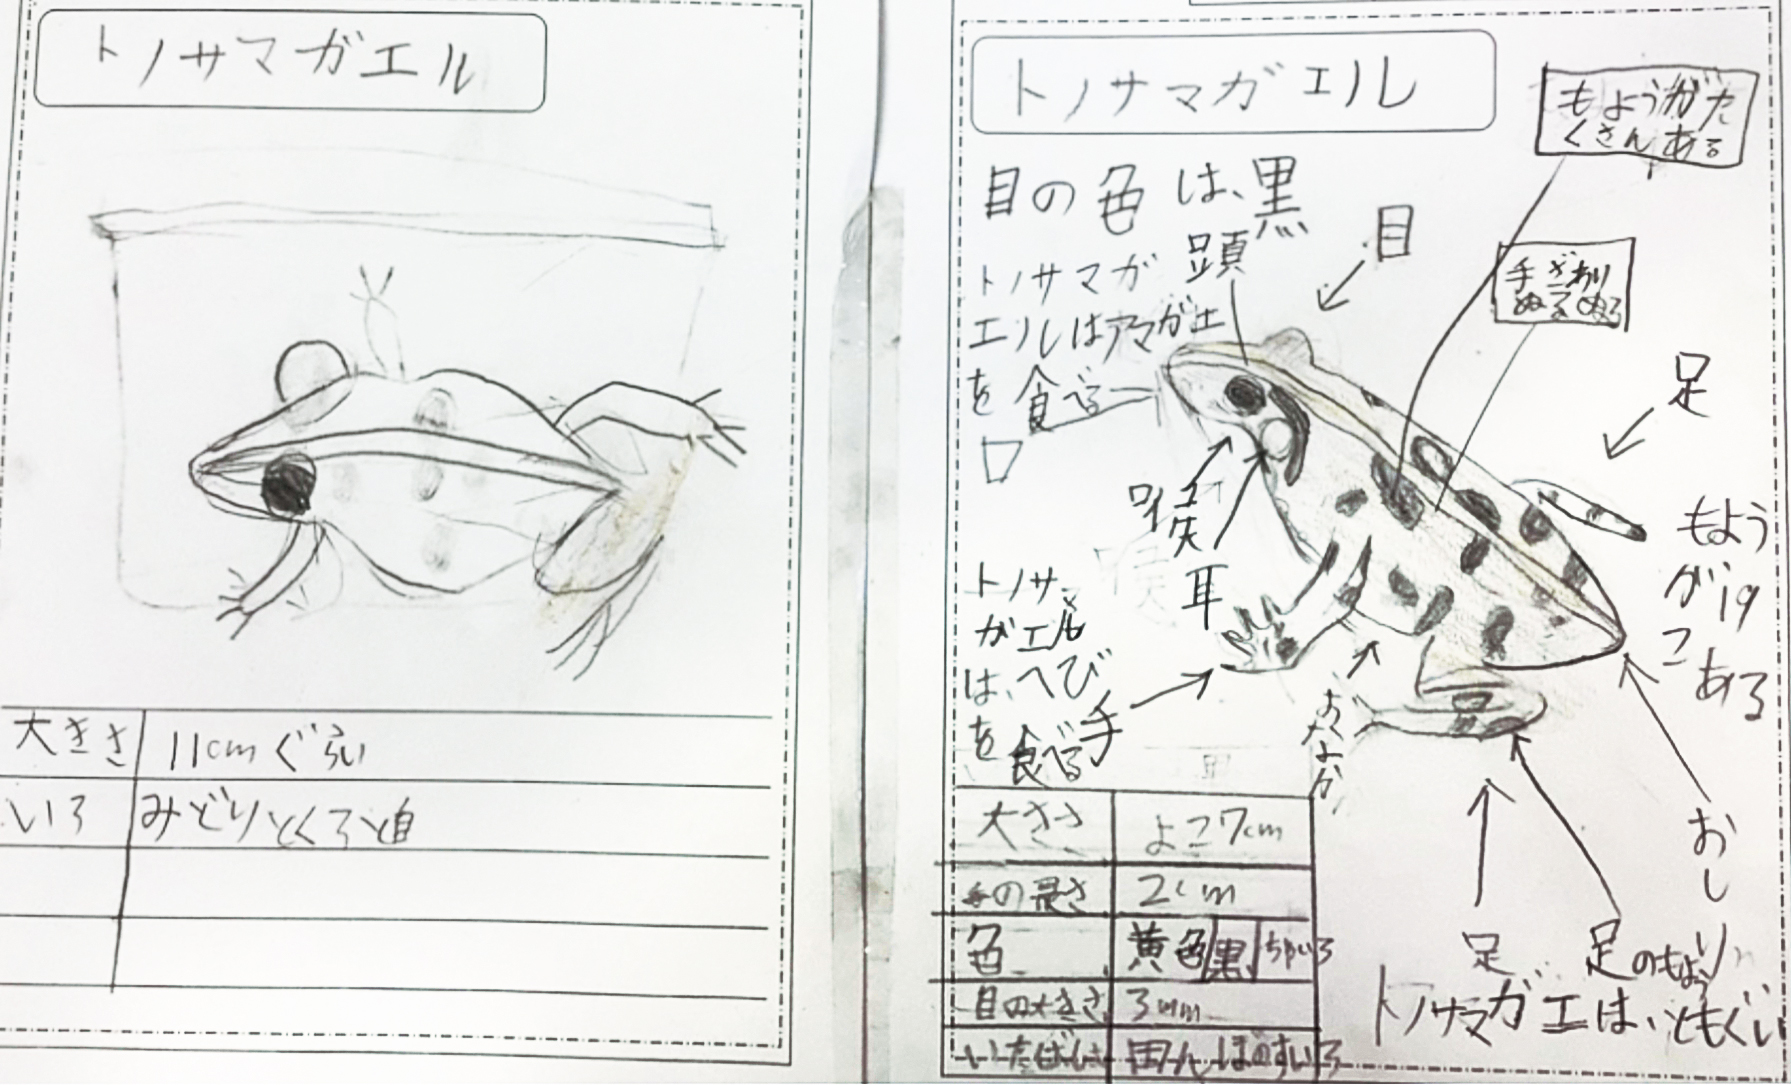 トノサマガエル
大きさ 11cmぐらい
いろ みどりとくろと白
トノサマガエル
もようがた
くさんある
目の色は、黒
頭
目
手ざわり
ぬるぬる
トノサマガ
エルはアマガエ
を食べる
口
足
喉
耳
もよう
が19
こ
ある
トノサマ
ガエル
は、へび
を食べる
手
おなか
おしり
足
足のもよう
トノサマガエは、ともぐい
大きさ よこ7cm
手の長さ 2cm
色 黄色 黒 ちゃいろ
目の大きさ 3mm
いたばしょ 田んぼのすいろ